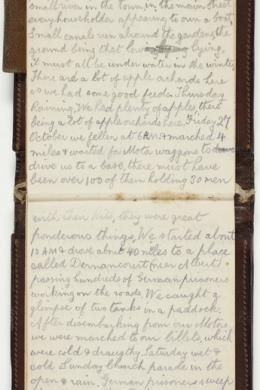 small river in the town, in the main street
every householder appearing to own a boat,
Small canals run around the gardens, the
ground being that low lying,
it must all be under water in the winter
There are a lot of apple orchards here
as we had some good feeds. Thursday
Raining, We had plenty of apples, there
being a lot of apple orchards here. Friday 27
October we fell in at 6 AM & marched 4
miles & waited for Motor waggons to
drive us to a base, there must have
been over 100 of them holding 30 men
with their kits, they were great
ponderous things, We started about
10 AM & drove about 40 miles to a place
called Dernancourt (near Albert)
passing hundreds of German prisoners
working on the roads, We caught a
glimpse of two tanks in a paddock.
After disembarking from our Motors
we were marched to our billets, which
were cold & draughty, Saturday wet &
cold Sunday Church parade in the
open & rain, German prisoners sweep